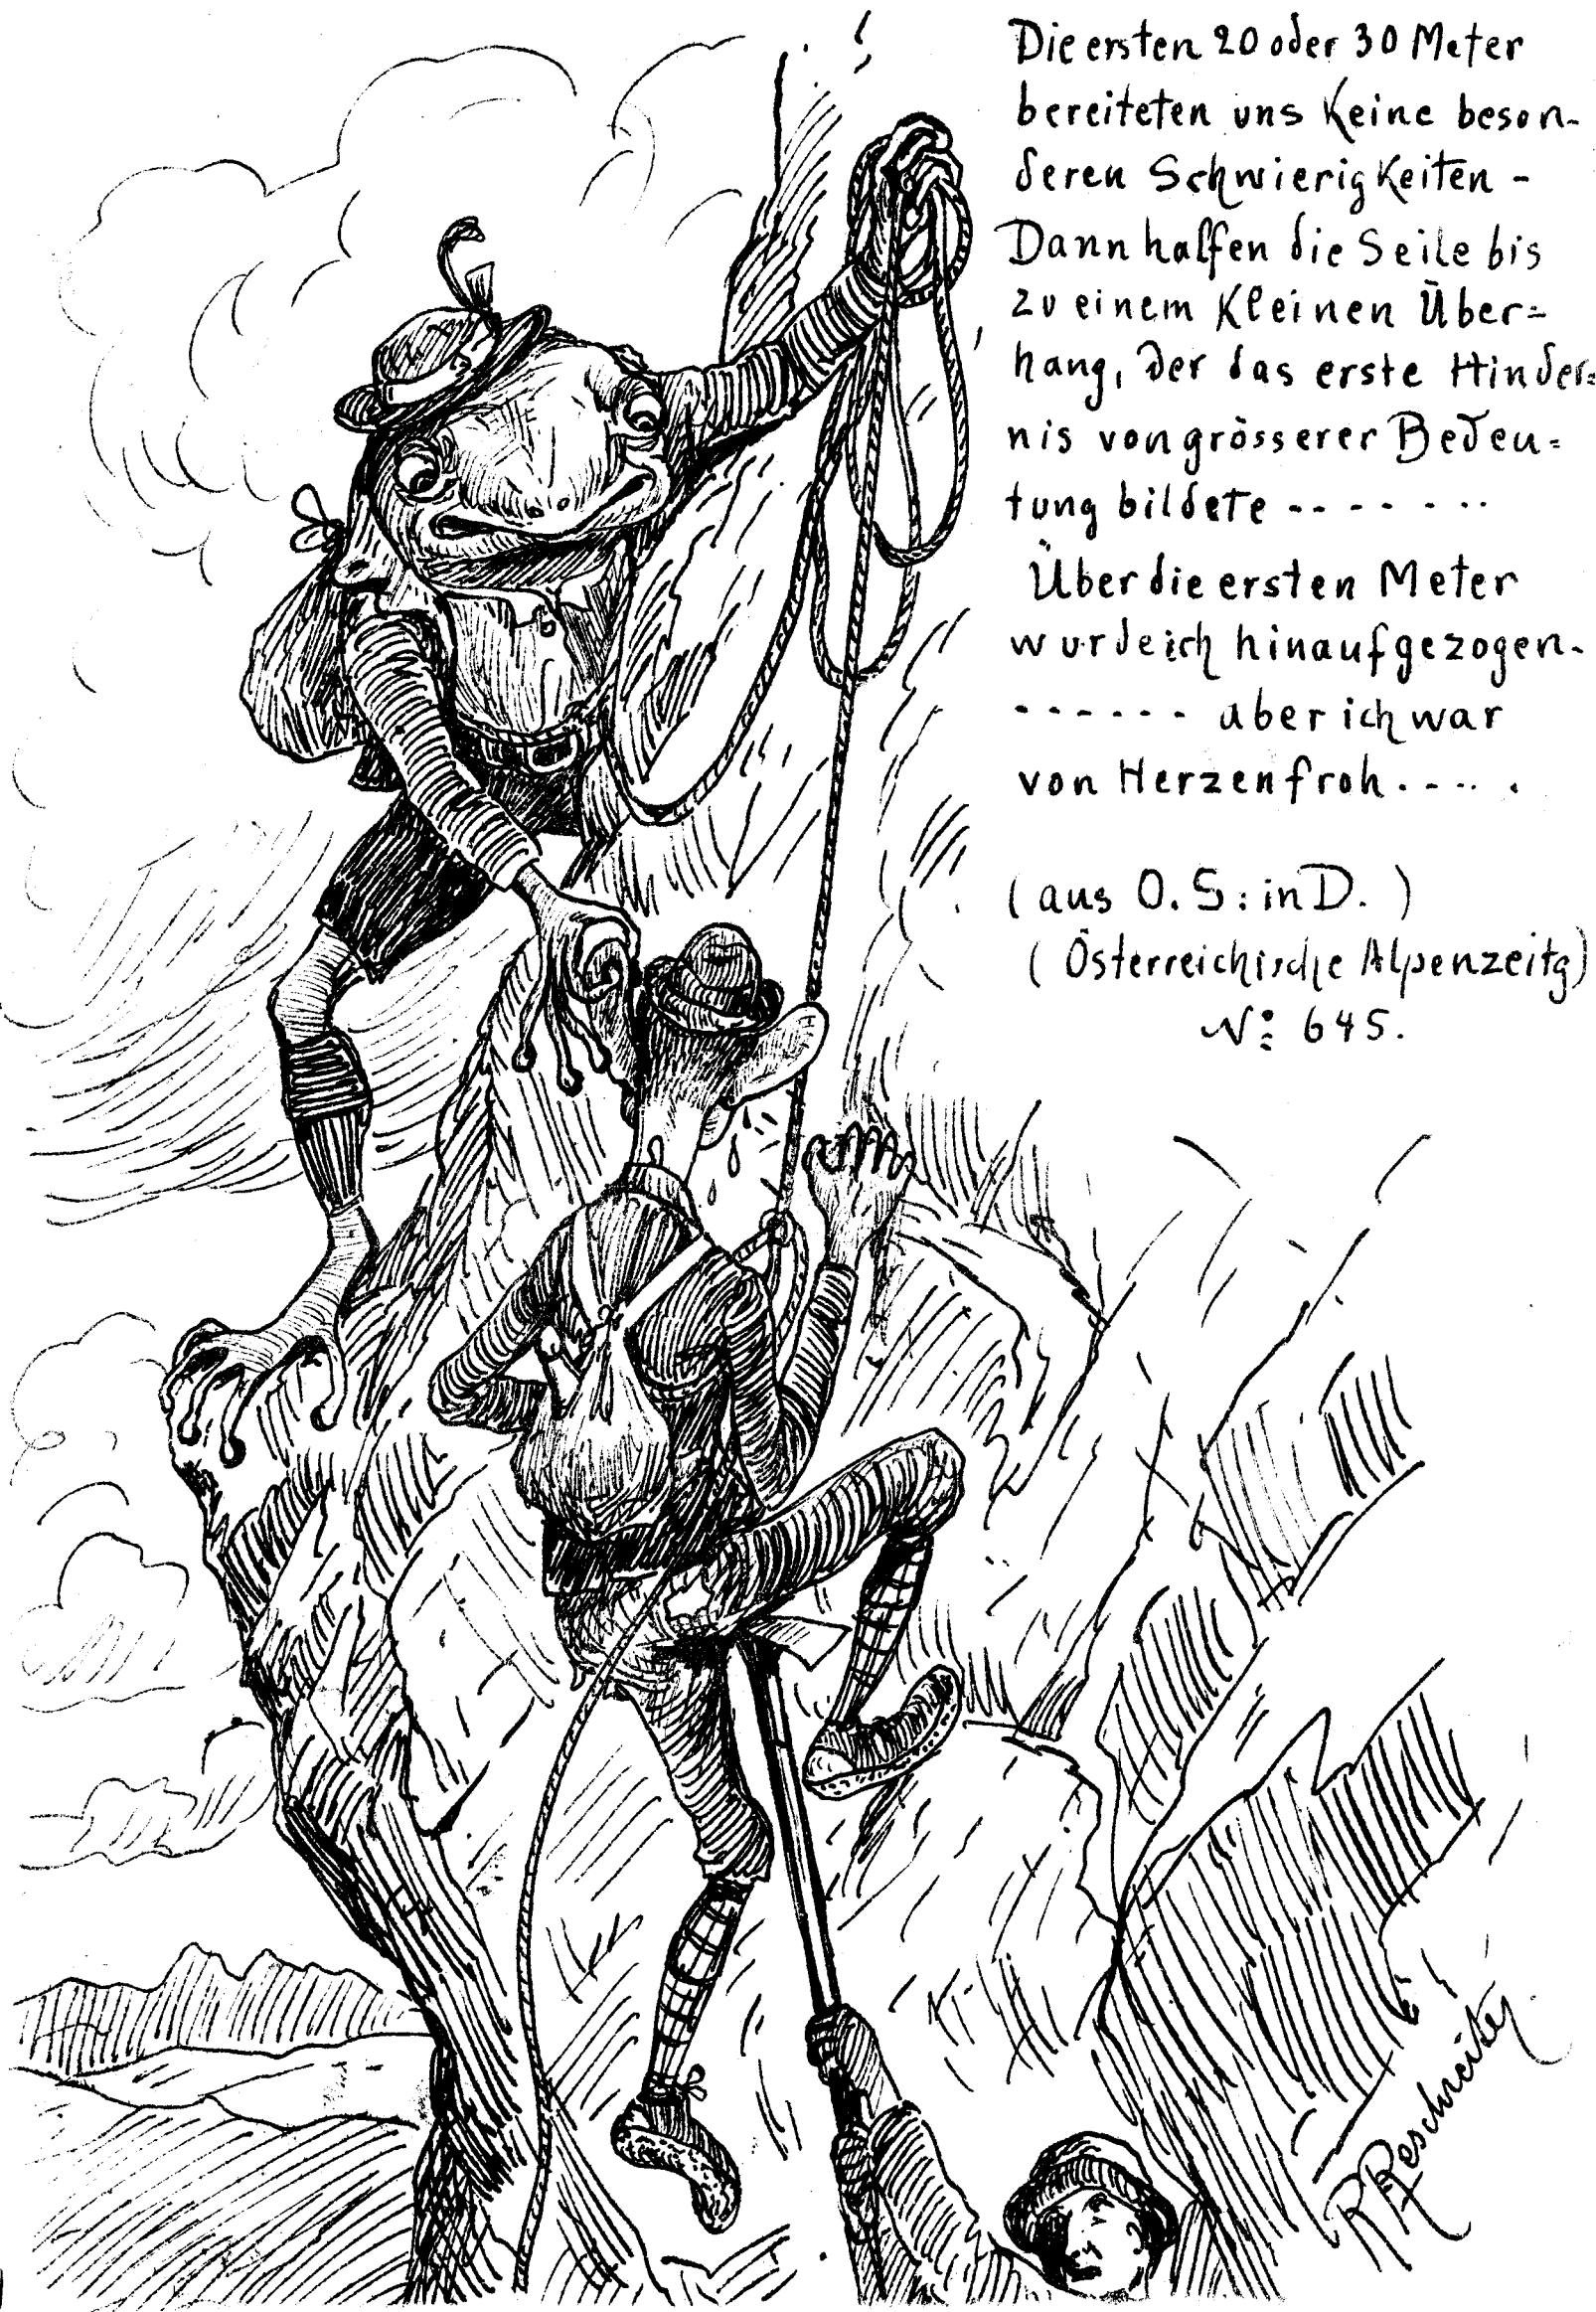 Die ersten 20 oder 30 Meter
bereiteten uns keine beson-
deren Schwierigkeiten -
Dann halfen die Seile bis
zu einem kleinen Über=
hang, der das erste Hinder=
nis von grösserer Bedeu=
tung bildete -- - - - ..
Über die ersten Meter
wurde ich hinaufgezogen-
- - - - - - aber ich war
von Herzen froh. - - .. .
(aus O. S: in D. )
( Österreichische Alpenzeitg)
No: 645.
R Reschreiter